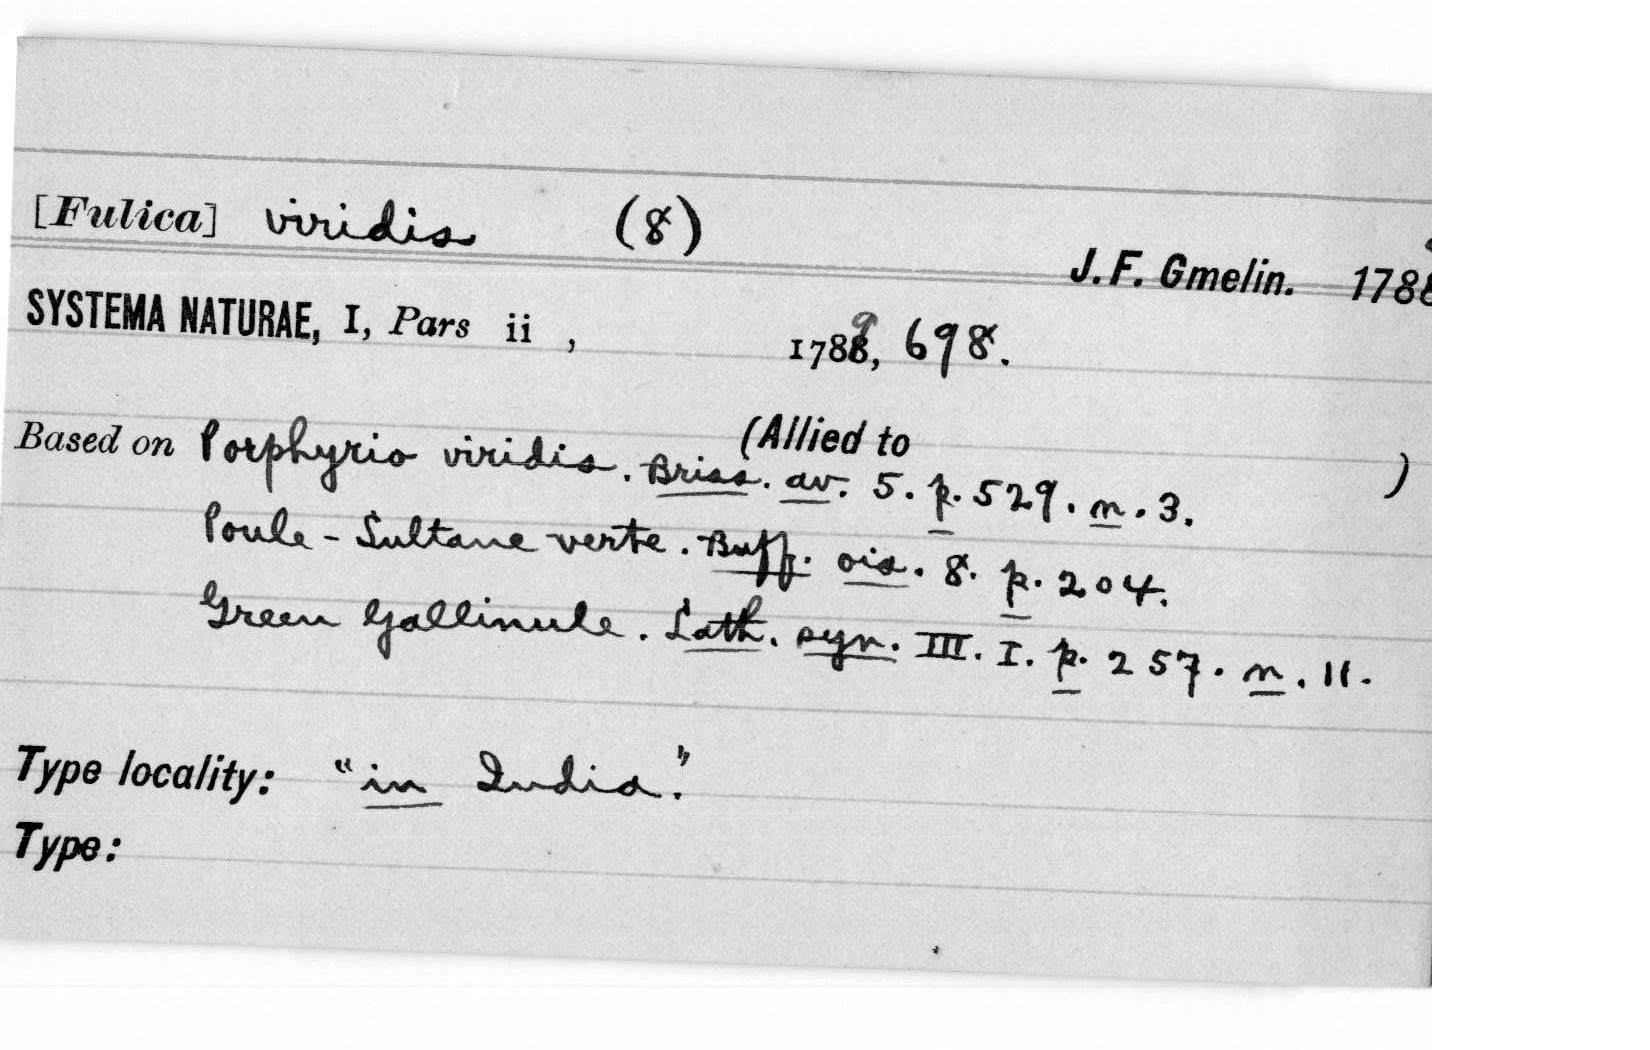 [Fulica] viridis (8)
J. F. Gmelin. 1788
SYSTEMA NATURAE, I, Pars ii , 1788, 698.
9
(Allied to )
Based on Porphyrio viridis. Briss. av. 5. p. 529. n. 3.
Poule-Sultane verte. Buff. ois. 8. p. 204.
Green Gallinule. Lath. syn. III. I. p. 257. n. 11.
Type locality: "in India."
Type: